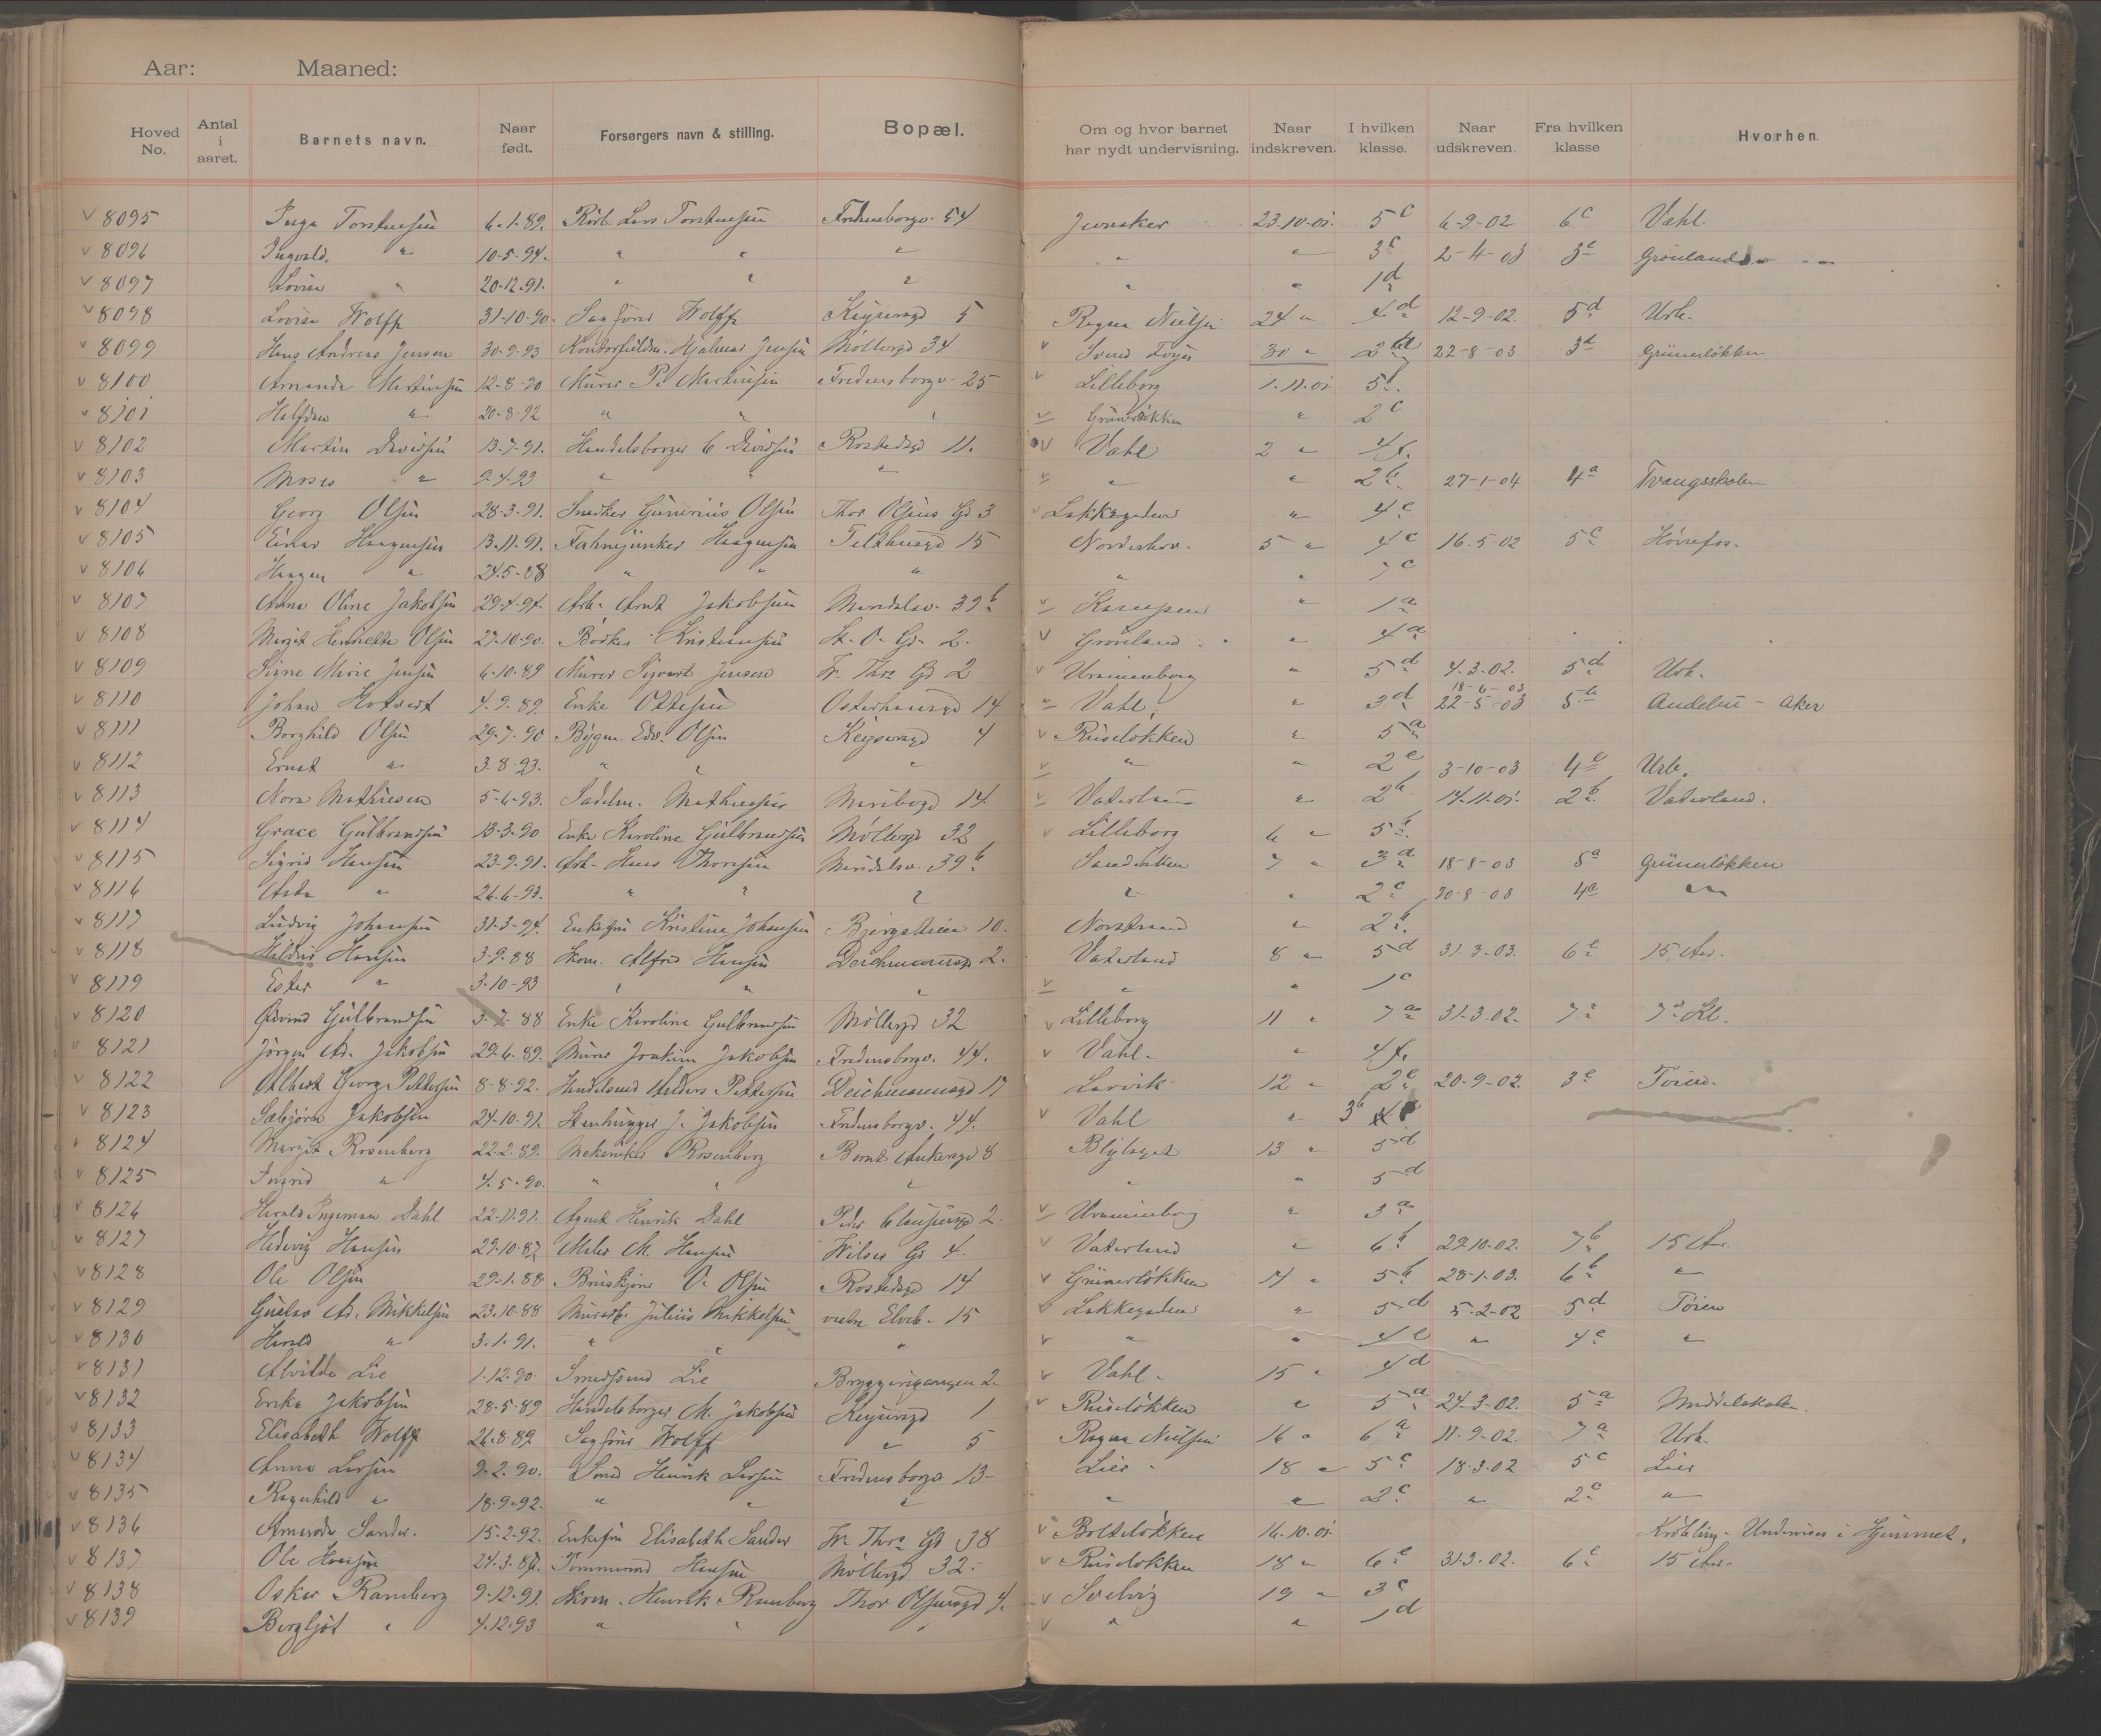 Aar: Maaned:
Hoved No. Antal i aaret. Barnets navn. Naar født. Forsørgers navn & stilling. Bopæl. Om og hvor barnet har nydt undervisning. Naar indskreven. I hvilken klasse. Naar udskreven. Fra hvilken klasse Hvorhen.
v 8095 Inga Torstensen 6-1-89. Lars Torstensen Fredensborgv. 54 23-10-01. 5c 6-9-02 6c Vahl.
v 8096 Ingvald. " 10-5-94. " " " " " 3c 2-4-03 3c Grönland
v 8097 Lovise " 20-12-91. " " " " " 1d
v 8098 Lovise Wolff 31-10-90. Sagförer Wolff Keysersgd 5 Ragna Nielsen 24 " 4d 12-9-02. 5d Urb.
v 8099 Hans Andreas Jensen 30-9-93 Hjalmar Jensen Möllergd 34 v Svend Foyn 30 " 22-8-03 3d Grünerlökken
v 8100 Amanda Martinsen 12-8-90 Murer P. Martinsen Fredensborgv. 25 v Lilleborg 1-11-01 5b.
v 8101 Halfdan " 20-8-92 " " " v Grünerlökken " 2c
v 8102 Martin Davidsen 13-7-91. Handelsborger C Davidsen Rostedsgd 11. v Vahl 2 " 4f.
v 8103 Moses " 9-4-93 " " " v " " 2b. 27-1-04 4a Tvangsskolen
v 8104 Georg Olsen 28-3-91. Snedker Gunerius Olsen Thor Olsens Gd 3 v Lakkegaden " 4c
v 8105 Einar Haagensen 13-11-91. Fahnejunker Haagensen Telthusgd 15 Norderhov. 5 " 4c 16-5-02 5c Hönefos.
v 8106 Haagen " 24-5-88 " " " " " 7c
v 8107 Anna Oline Jakobsen 29-4-94. Arb. Arnt Jakobsen Maridalsv. 39b v Kampen " 1a
v 8108 Margit Henriette Olsen 27-10-90. Bödker Kristiansen St. O. Gd. 2. v Grönland " 4a
v 8109 Signe Marie Jensen 6-10-89 Murer Sigvart Jensen Fr. Thrs Gd 2 v Uranienborg " 5d 4-3-02. 5d Urb.
v 8110 Johan Hotvedt 4-9-89. Enke Ottesen Osterhausgd 14 v Vahl. " 3d 18-6-03 22-5-03 5b Andebu - Aker
v 8111 Borghild Olsen 29-7-90 Bygm. Edv. Olsen Keysersgd 4 v Ruselökken " 5a
v 8112 Ernst " 3-8-93. " " " v " " 2e 3-10-03 4e Urb.
v 8113 Nora Mathiesen 5-6-93. Sadelm. Mathiesen Maribogd 14. v Vaterland " 2b 14-11-01. 2b Vaterland.
v 8114 Grace Gulbrandsen 13-3-90 Enke Karoline Gulbrandsen Möllergd 32 v Lilleborg 6 " 5b.
v 8115 Sigrid Hansen 23-9-91. Arb. Hans Thoresen Maridalsv. 39b Sandaker 7 " 3d 18-8-03 5a Grünerlökken
v 8116 Asta " 26-6-93. " " " " " 2c 20-8-03 4a "
v 8117 Ludvig Johansen 31-3-94. Enkefru Kristine Johansen Bjergstien 10. Norstrand " 2b.
v 8118 Hildur Hansen 3-9-88 Kom. Alfred Hansen Deichmannsgd 2. Vaterland 8 " 5d 31-3-03. 6e 15 Aar.
v 8119 Ester " 3-10-93 " " " v " " 1c
v 8120 Öivind Gulbrandsen 3-7-88 Enke Karoline Gulbrandsen Möllergd 32 v Lilleborg 11 " 7a 31-3-02. 7a 7de Kl.
v 8121 Jörgen Ad. Jakobsen 29-6-89. Murer Joakim Jakobsen Fredensborgv. 44. v Vahl. " 4f.
v 8122 Albert Georg Pettersen 8-8-92. Handelsmd Anders Pettersen Deichmannsgd 17 Larvik 12 " 2e 20-9-02. 3e Töien.
v 8123 Jakobsen 24-10-91. Stenhugger J. Jakobsen Fredensborgv. 44. v Vahl " 3b
v 8124 Margit Rosenberg 22-2-89. Mekaniker Rosenberg Bernt Ankersgd 8 13 " 5d
v 8125 Ingrid " 4-5-90. " " " " " 5d
v 8126 Harald Ingeman Dahl 22-11-91. Agent Henrik Dahl Peder Clausensgd 2. v Uranienborg " 3a
v 8127 Hedevig Hansen 29-10-87 Maler M. Hansen Wilses Gd 4. v Vaterland " 6b 29-10-02. 7b 15 Aar.
v 8128 Ole Olsen 29-1-88 Bruskjörer O. Olsen Rostedsgd 14 v Grünerlökken 14 " 5b 28-1-03. 6b "
v 8129 Gustav Ad. Mikkelsen 23-10-88 Murarb. Julius Mikkelsen vestre Elveb. 15 v Lakkegaden " 5d 5-2-02 5d Töien
v 8130 Harald " 3-1-91. " " " v " " 4e " 4e "
v 8131 Alvilda Lie 1-12-90 Smedsvend Lie Bryggerigangen 2. v Vahl. 15 " 4d
v 8132 Erika Jakobsen 28-5-89 Handelsborger M. Jakobsen Keysersgd 1 v Ruselökken " 5a 24-3-02. 5a Middelskolen.
v 8133 Elisabeth Wolff 26-8-89 Sagförer Wolff " 5 Ragna Nielsen 16 " 6a 11-9-02. 7a Urb.
v 8134 Anna Larsen 9-2-90. Smed Henrik Larsen Fredensborgv 13 Lier 18 " 5c 18-3-02 5c Lier
v 8135 Ragnhild " 18-9-92. " " " " " 2c " 2c "
v 8136 Sander. 15-2-92. Enkefru Elisabeth Sander Fr. Thrs Gd 38 v Bolteløkken 16-10-01. Kröbling. Undervises i Hjemmet.
v 8137 Ole Hansen 24-3-87. Tömmermd Hansen Möllergd 32. v Ruselökken 18 " 6e 31-3-02. 6e 15 Aar.
v 8138 Oskar Ramberg 9-12-91. Kom. Henrik Ramberg Thor Olsensgd 4. v Svelvig 19 " 3c
v 8139 Bergljot " 4-12-93 " " " v " " 1d